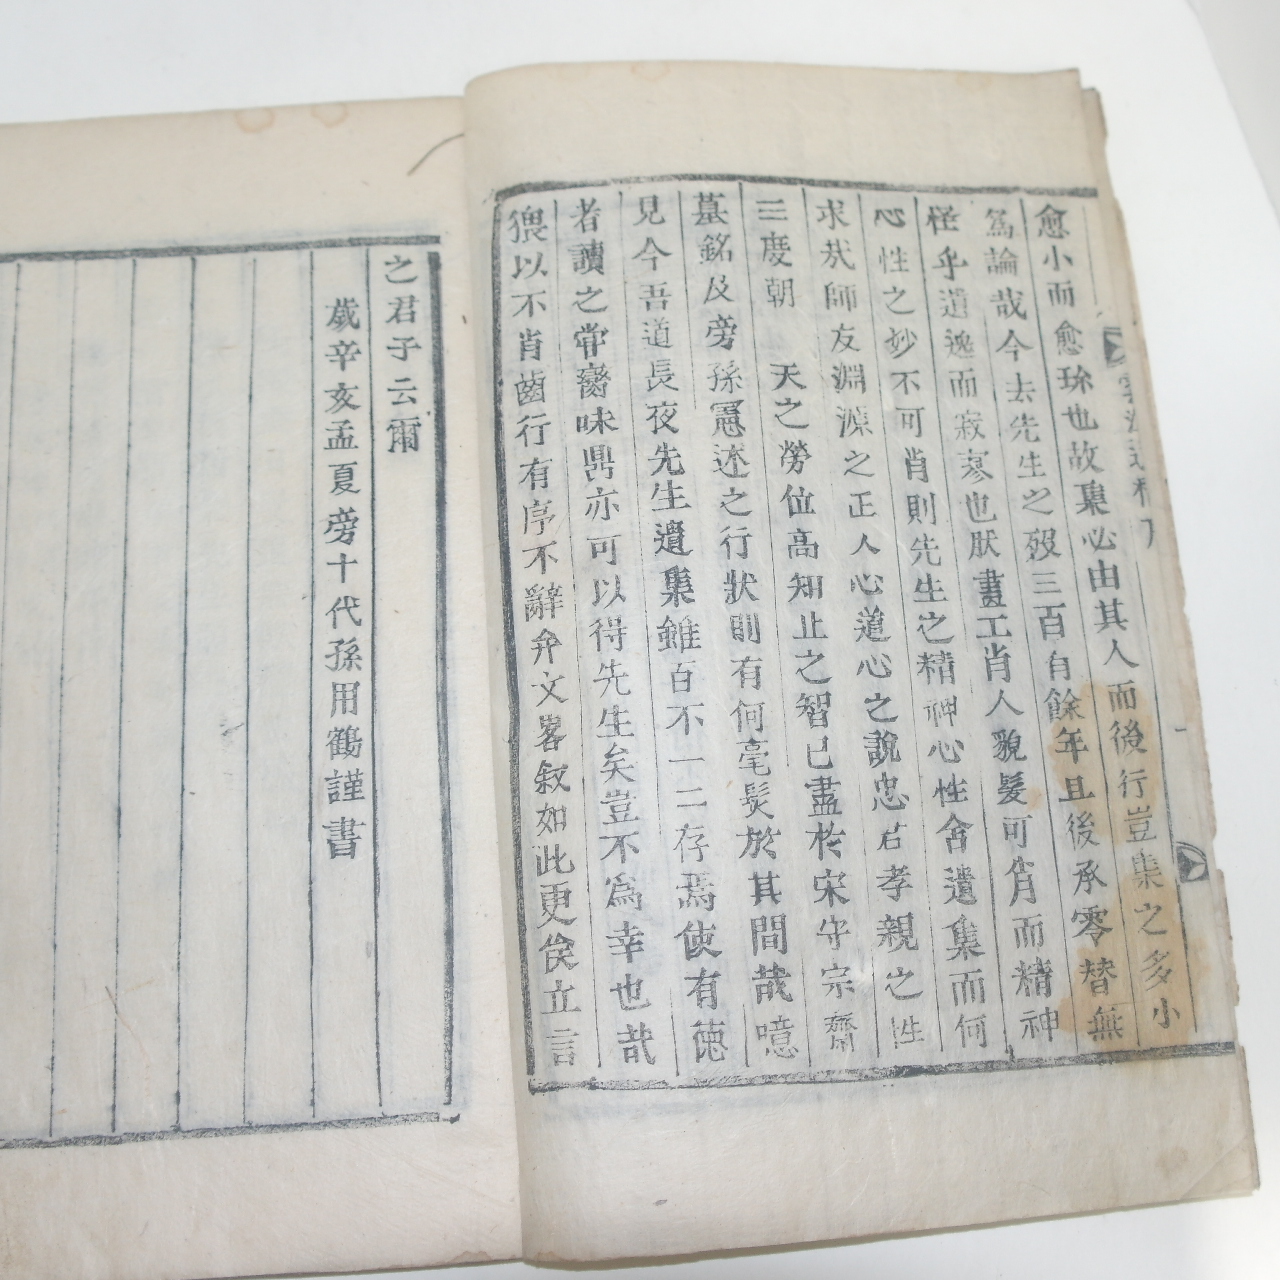 愈小而愈珎也故集必由其人而後行豈集之多小
爲論哉今去先生之歿三百有餘年且後承零替無
怪乎遺逸而寂寥也厥畫工肖人貌髮可肖而精神
心性之妙不可肖則先生之精神心性舍遺集而何
求哉師友淵源之正人心道心之說忠君孝親之性
三度朝 天之勞位高知止之智已盡於宋守宗齋
墓銘及旁孫憲述之行狀則有何毫髮於其間哉噫
見今吾道長夜先生遺集雖百不一二存焉使有德
者讀之常臠味鼎亦可以得先生矣豈不爲幸也哉
猥以不肖齒行有序不辭弁文畧敘如此更俟立言
之君子云爾
歲辛亥孟夏旁十代孫用鶴謹書